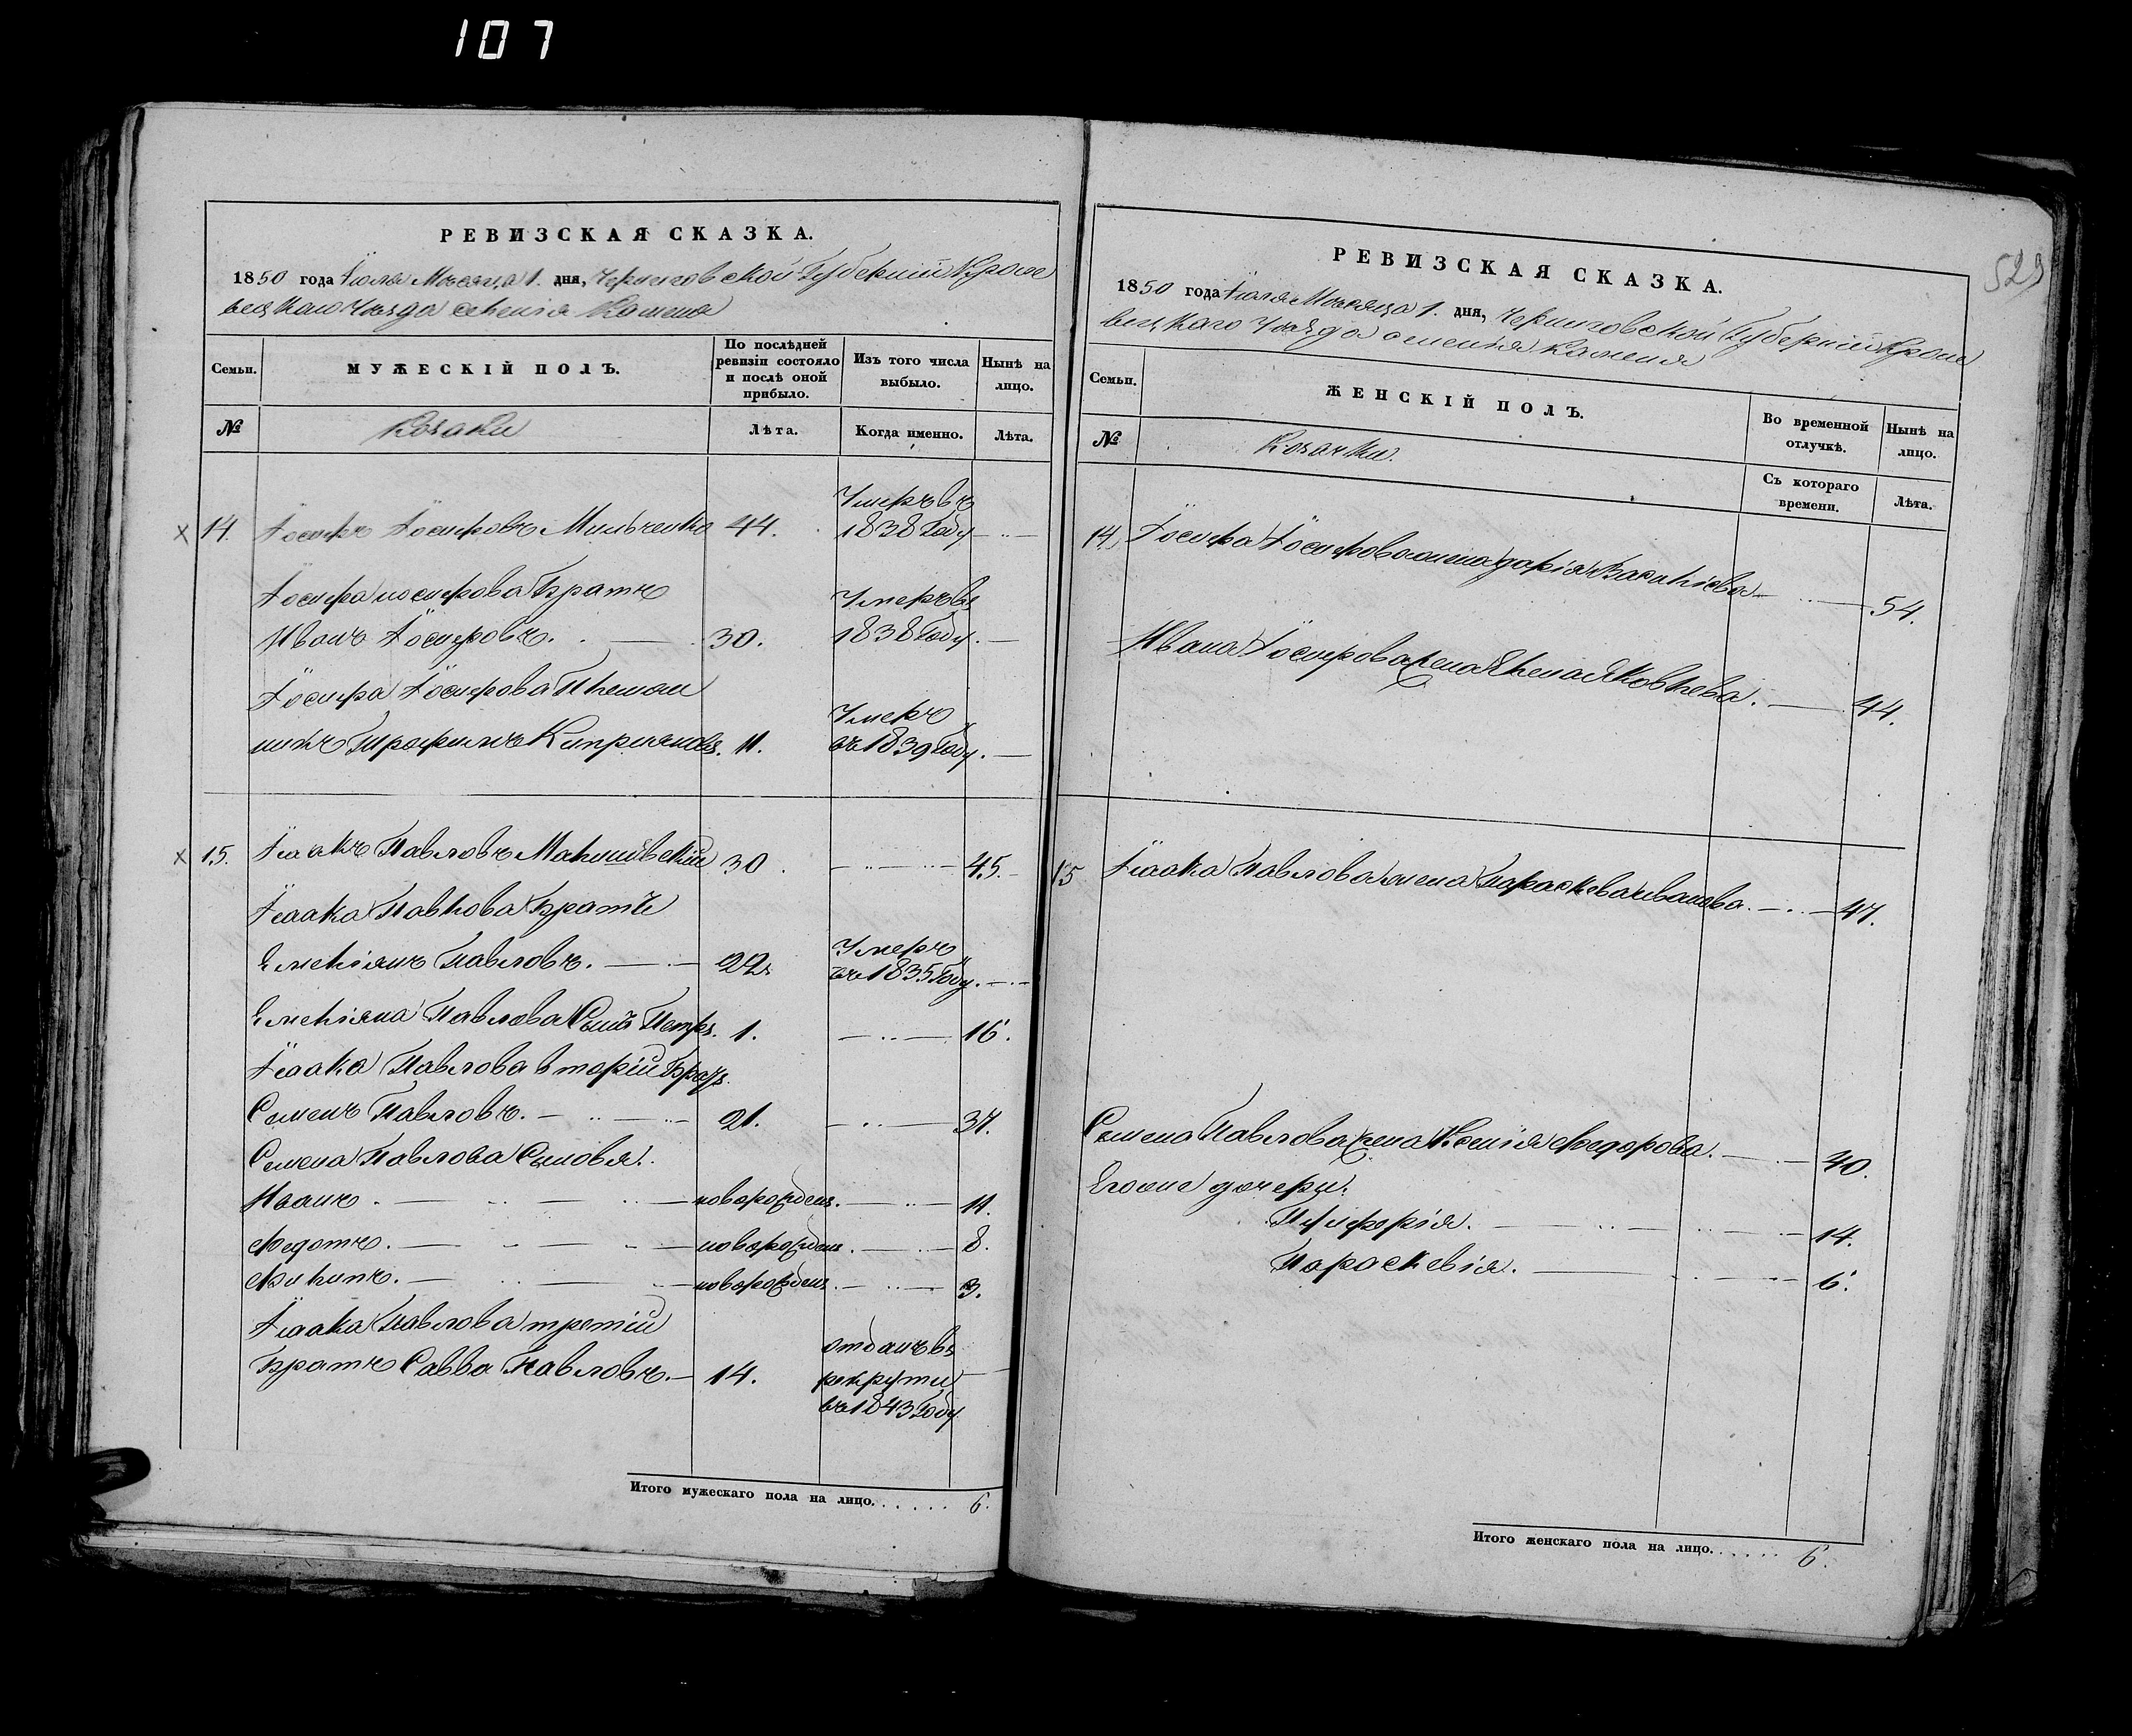 107
РЕВИЗСКАЯ СКАЗКА.
1850 года Іюля Мѣсяца 1. дня, Черниговской Губерніи Кроле
вецкаго Уѣзда селенія Каменя
Семьи.
МУЖЕСКІЙ ПОЛЪ.
По послѣдней
ревизіи состояло
и послѣ оной
прибыло.
Изъ того числа
выбыло.
Нынѣ на
лицо.
№
Козаки
Лѣта.
Когда именно.
Лѣта.
Умеръ въ
х 14. Іосифъ Іосифовъ 44. 1838 Году
Іосифа иосифова Братъ Умеръ въ
Иванъ Іосифовъ. 30. 1838 Году.
Іосифа Іосифова Племян
Умеръ
никъ Трофимъ Киприяновъ. 11. въ 1839 Году.
х 15. Ісаакъ Павловъ 30. 45.
Ісаака Павлова Братъ
Умеръ
Емеліянъ Павловъ. 22. въ 1835 Году.
Емеліяна Павлова Сынъ Петръ. 1. 16.
Ісаака Павлова вторій Братъ
Семенъ Павловъ. 21. 37.
Семена Павлова Сыновья:
Иванъ. новорожден. 11.
Федотъ. новорожден. 8.
Филипъ. новорожден. 3.
Ісаака Павлова третій отданъ въ
Братъ Савва Павловъ. 14. рекруты
въ 1843 Году
Итого мужескаго пола на лицо...... 6.
529
РЕВИЗСКАЯ СКАЗКА.
1850 года Іюля Мѣсяца 1. дня, Черниговской Губерніи Кроле
вецкаго Уѣзда селенія Каменя
Семьи.
ЖЕНСКІЙ ПОЛЪ.
Во временной
отлучкѣ.
Нынѣ на
лицо.
№
Козачки.
Съ котораго
времени.
Лѣта.
14. Іосифа Іосифова жена дарія Василіева 54.
Ивана Іосифова жена Яковлева. 44.
15 Ісаака Павлова жена Параскева иванова. 47.
Семена Павлова жена Ксенія Федорова. 40.
Егоже дочери:
14.
Параскевія. 6.
Итого женскаго пола на лицо...... 6.